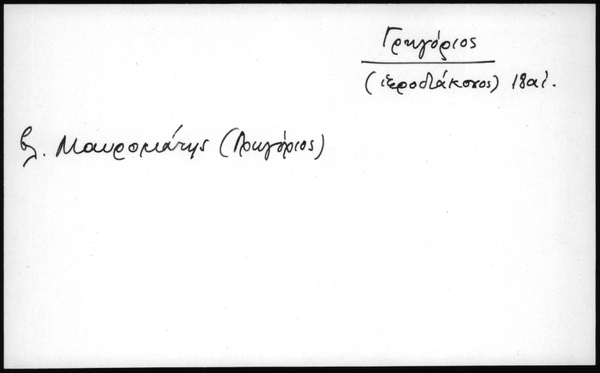 Γρηγόριος
(ιεροδιάκονος) 18 αἰ.
βλ. Μαυρομάτης (Γρηγόριος)